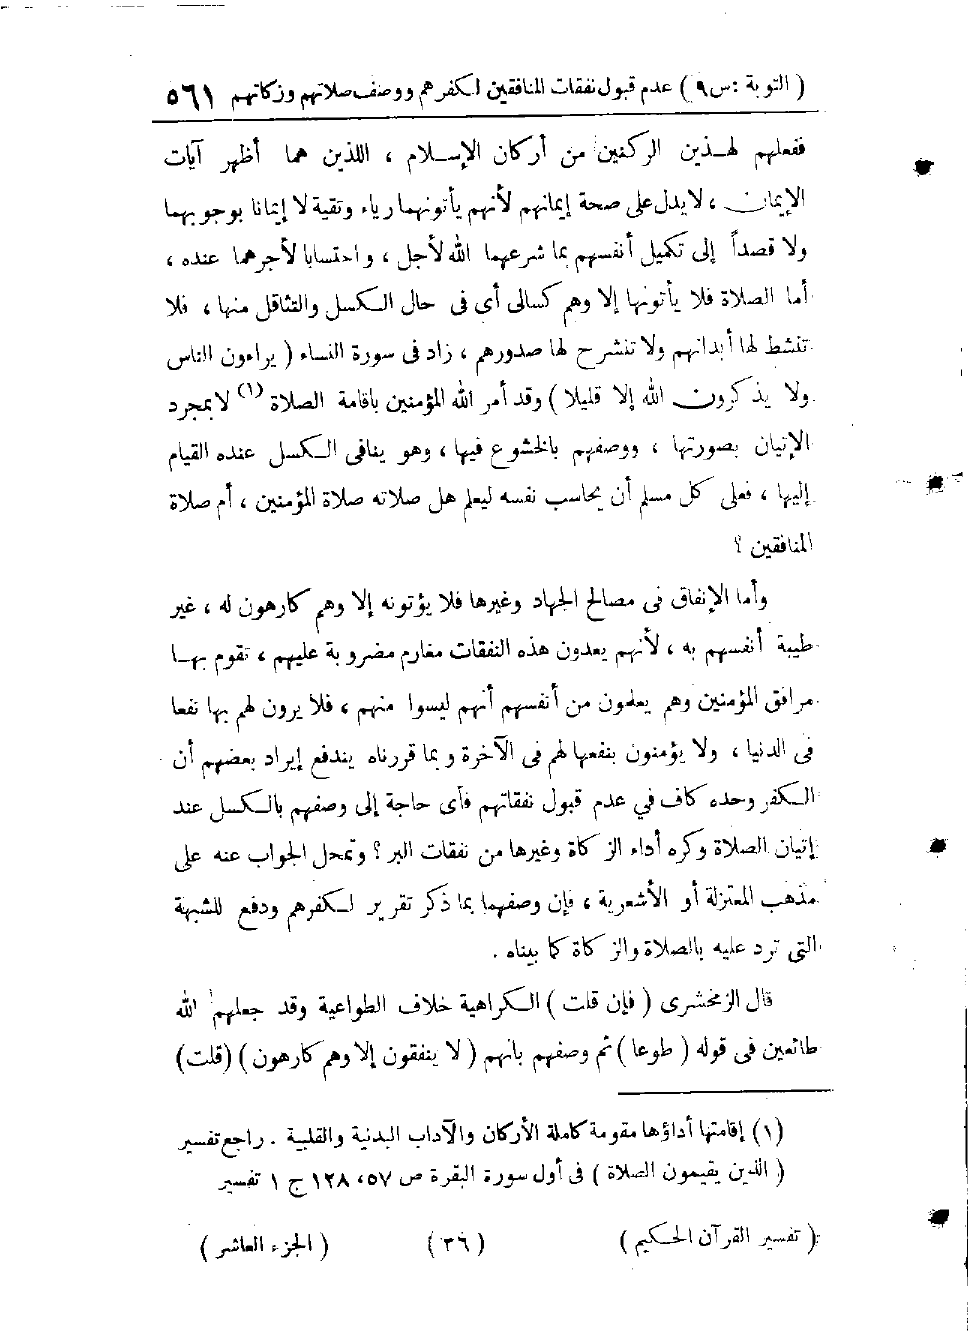 ( التوبة : س ٩ ) عدم قبول نفقات المنافقين لكفرهم ووصف صلاتهم وزكاتهم ٥٦١
ففعلهم لهذين الركنين من أركان الإسلام ، اللذين هما أظهر آيات
الإيمان ، لا يدل على صحة إيمانهم لأنهم يأتونهما رياء وتقية لا إيمانا بوجوبهما
ولا قصداً إلى تكميل أنفسهم بما شرعهما الله لأجل ، واحتسابا لأجرهما عنده ،
أما الصلاة فلا يأتونها إلا وهم كسالى أى فى حال الكسل والتثاقل منها ، فلا
تنشط لها أبدانهم ولا تنشرح لها صدورهم ، زاد فى سورة النساء ( يراءون الناس
ولا يذكرون الله إلا قليلا ) وقد أمر الله المؤمنين باقامة الصلاة (١) لا بمجرد
الإتيان بصورتها ، ووصفهم بالخشوع فيها ، وهو ينافى الكسل عنده القيام
إليها ، فعلى كل مسلم أن يحاسب نفسه ليعلم هل صلاته صلاة المؤمنين ، أم صلاة
المنافقين ؟
وأما الإنفاق فى مصالح الجهاد وغيرها فلا يؤتونه إلا وهم كارهون له ، غير
طيبة أنفسهم به ، لأنهم يعدون هذه النفقات مغارم مضروبة عليهم ، تقوم بهـا
مرافق المؤمنين وهم يعلمون من أنفسهم أنهم ليسوا منهم ، فلا يرون لهم بها نفعا
فى الدنيا ، ولا يؤمنون بنفعها لهم فى الآخرة وبما قررناه يندفع إيراد بعضهم أن
الكفر وحده كاف في عدم قبول نفقاتهم فأى حاجة إلى وصفهم بالكسل عند
إتيان الصلاة وكره أداء الزكاة وغيرها من نفقات البر ؟ وتمحل الجواب عنه على
مذهب المعتزلة أو الأشعرية ، فإن وصفهما بما ذكر تقرير لكفرهم ودفع للشبهة
التى ترد عليه بالصلاة والزكاة كما بيناه .
قال الزمخشرى ( فإن قلت ) الكراهية خلاف الطواعية وقد جعلهم الله
طائعين فى قوله ( طوعا ) ثم وصفهم بانهم ( لا ينفقون إلا وهم كارهون ) (قلت)
(١) إقامتها أداؤها مقومة كاملة الأركان والآداب البدنية والقلبية . راجع تفسير
( الذين يقيمون الصلاة ) فى أول سورة البقرة ص ٥٧، ١٢٨ ج ١ تفسير
( تفسير القرآن الحكيم ) ( ٣٦ ) ( الجزء العاشر )